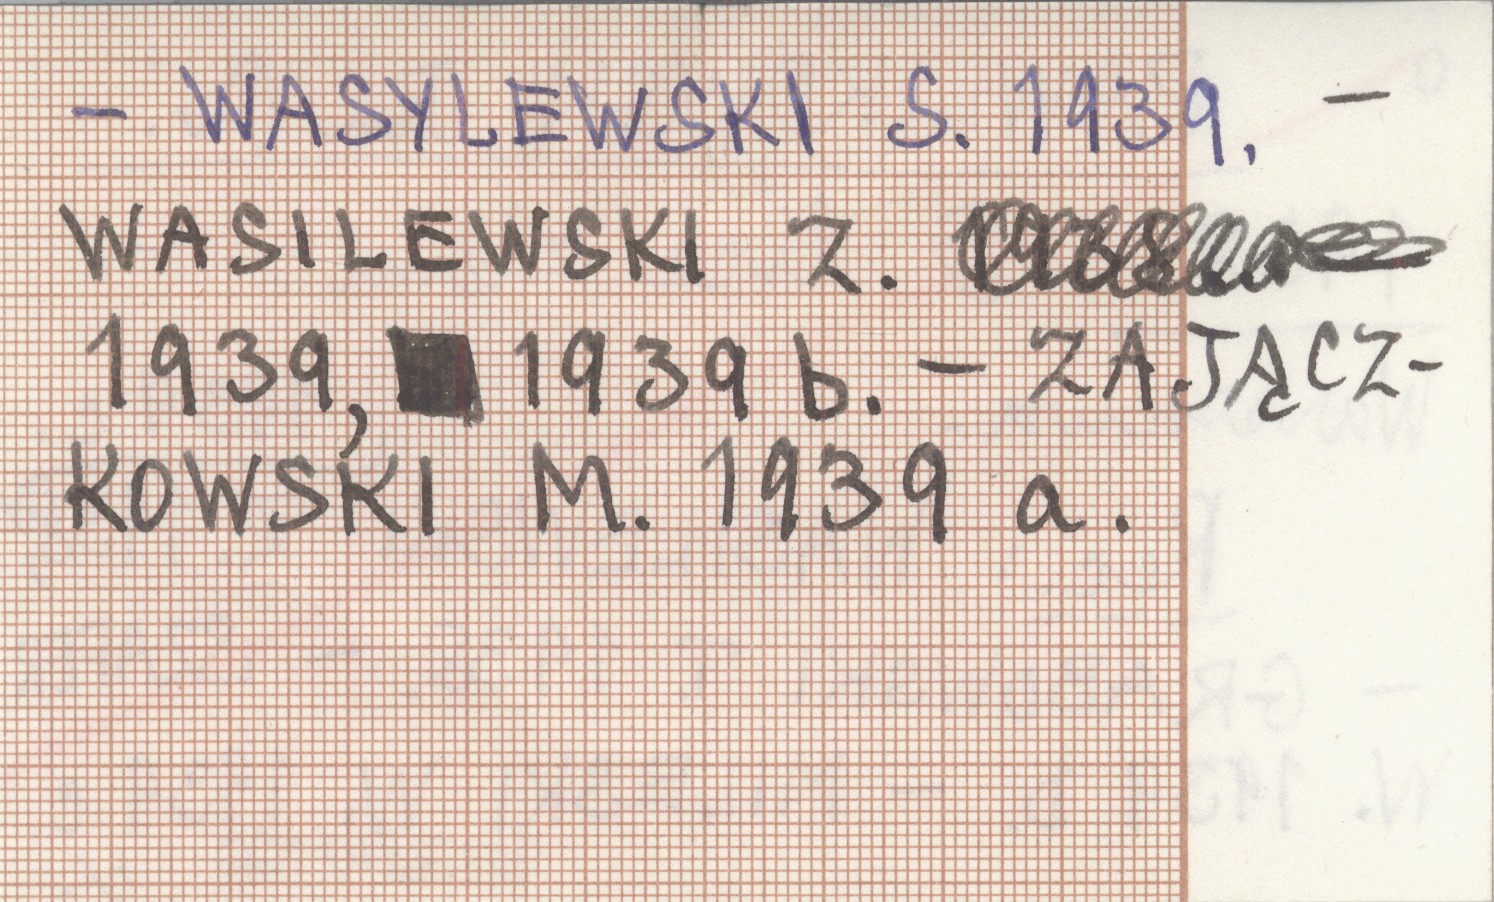 - WASYLEWSKI S. 1939. -
WASILEWSKI Z.
1939, 1939 b. - ZAJĄCZ-
KOWSKI M. 1939 a.